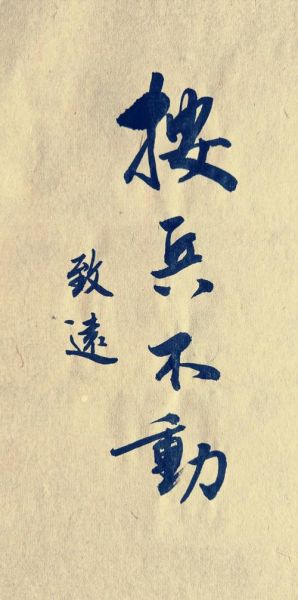 按兵不動
致遠